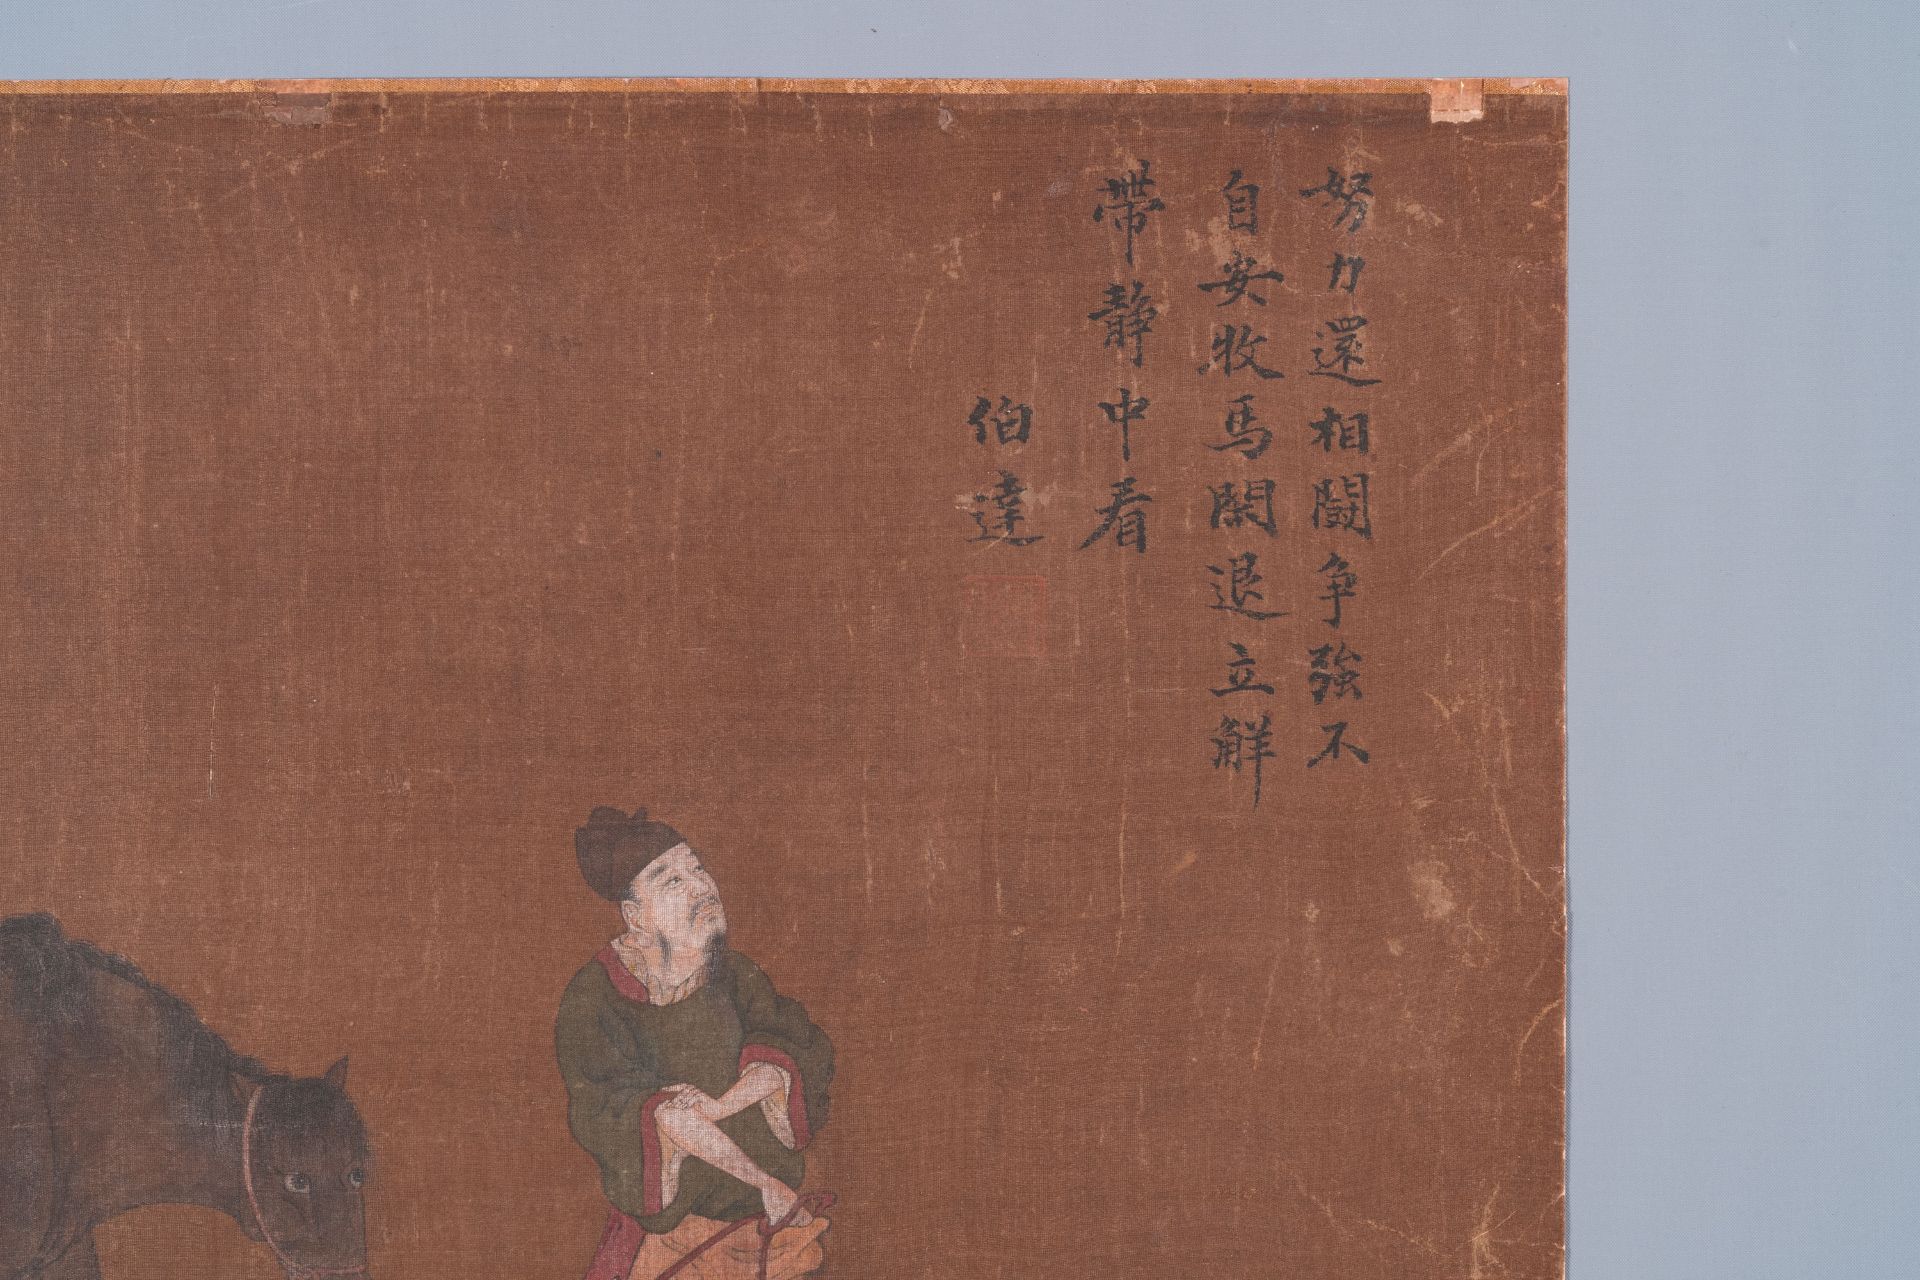 努力還相鬪争強不
自安牧馬閑退立觧
帶靜中看
伯達